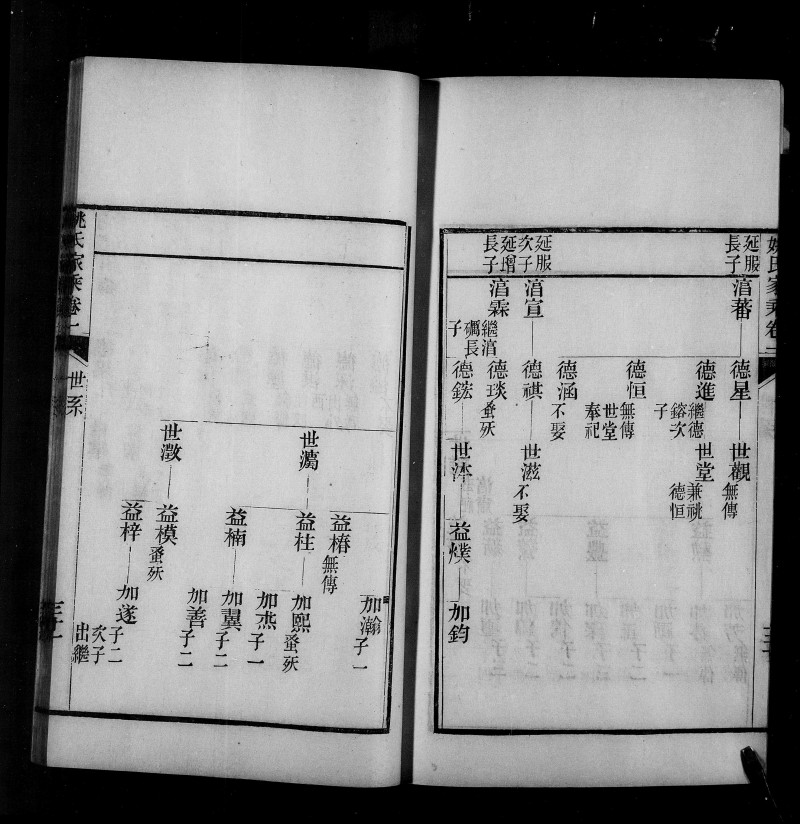 姚氏家乘卷一
延服長子
濆蕃
德星
世觀
無傳
德進
繼德鎔次子
世堂
兼祧德恒
德恒
無傳世堂奉祀
德涵
不娶
延服次子
濆宣
德祺
世滋
不娶
延增長子
濆霖
繼濆礪長子
德琰
蚤殀
德鋐
世泽
益㷖
加鈞
加瀚
子一
益椿
無傳
世瀉
益柱
加熙
蚤殀
加燕
子一
益楠
加翼
子二
加善
子二
世澂
益模
蚤殀
益梓
加遂
子二
次子出繼
姚氏家乘卷一
世系